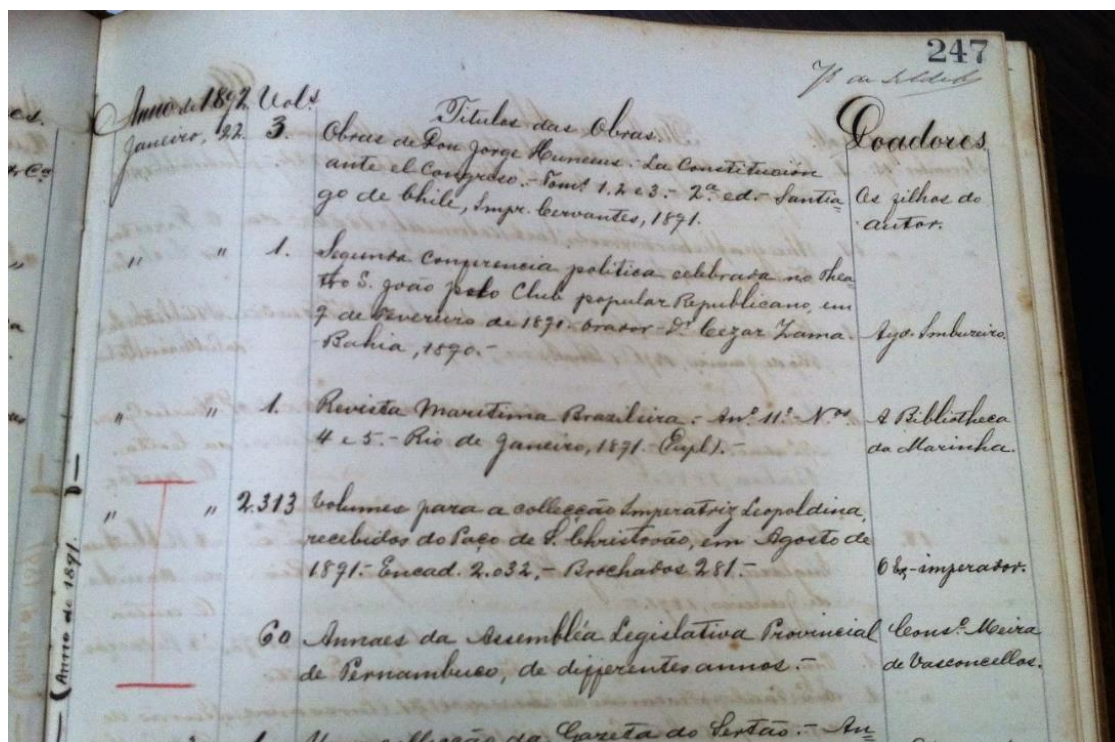 247
Anno de 1892. Vols
Titulos das Obras.
Doadores
Janeiro, 22. 3. Obras de Don Jorge Huneeus. La Constitucion
ante el Congreso. - Toms. 1, 2 e 3. - 2ª ed. - Santia
go de Chile, Impr. Cervantes, 1891.
Os filhos do
autor.
" " 1. Segunda conferencia politica celebrada no Thea
tro S. João pelo Club popular Republicano, em
de Fevereiro de 1890. Orador - Dr. Cezar Zama.
Bahia, 1890. -
" " 1. Revista Maritima Brazileira. - An.º 11.º - Nos
4 e 5. - Rio de Janeiro, 1891. - (Dupl). -
A Bibliotheca
da Marinha.
" " 2.313 Volumes para a collecção Imperatriz Leopoldina,
recebidos do Paço de S. Christovão, em Agosto de
1891. - Encad. 2.032, - Brochados 281. -
O Ex-imperador.
60 Annaes da Assembléa Legislativa Provincial
de Pernambuco, de differentes annos. -
Cons.º Meira
de Vasconcellos.
(Anno de 1891.)
collecção da Gazeta do Sertão. - An=